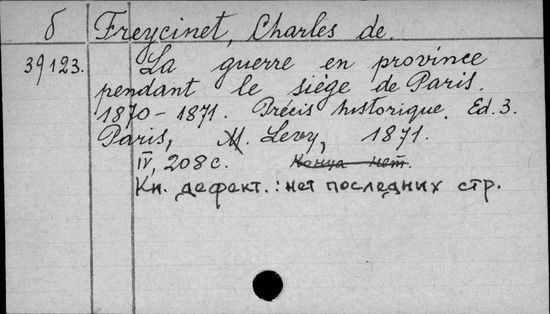 б Freycinet, Charles de.
39123. La guerre en province
pendant le siège de Paris.
1870-1871. Précis historique. Ed. 3.
Paris, M. Levy, 1871.
IV, 208 с. Конца нет.
Кн. дефект.: нет последних стр.